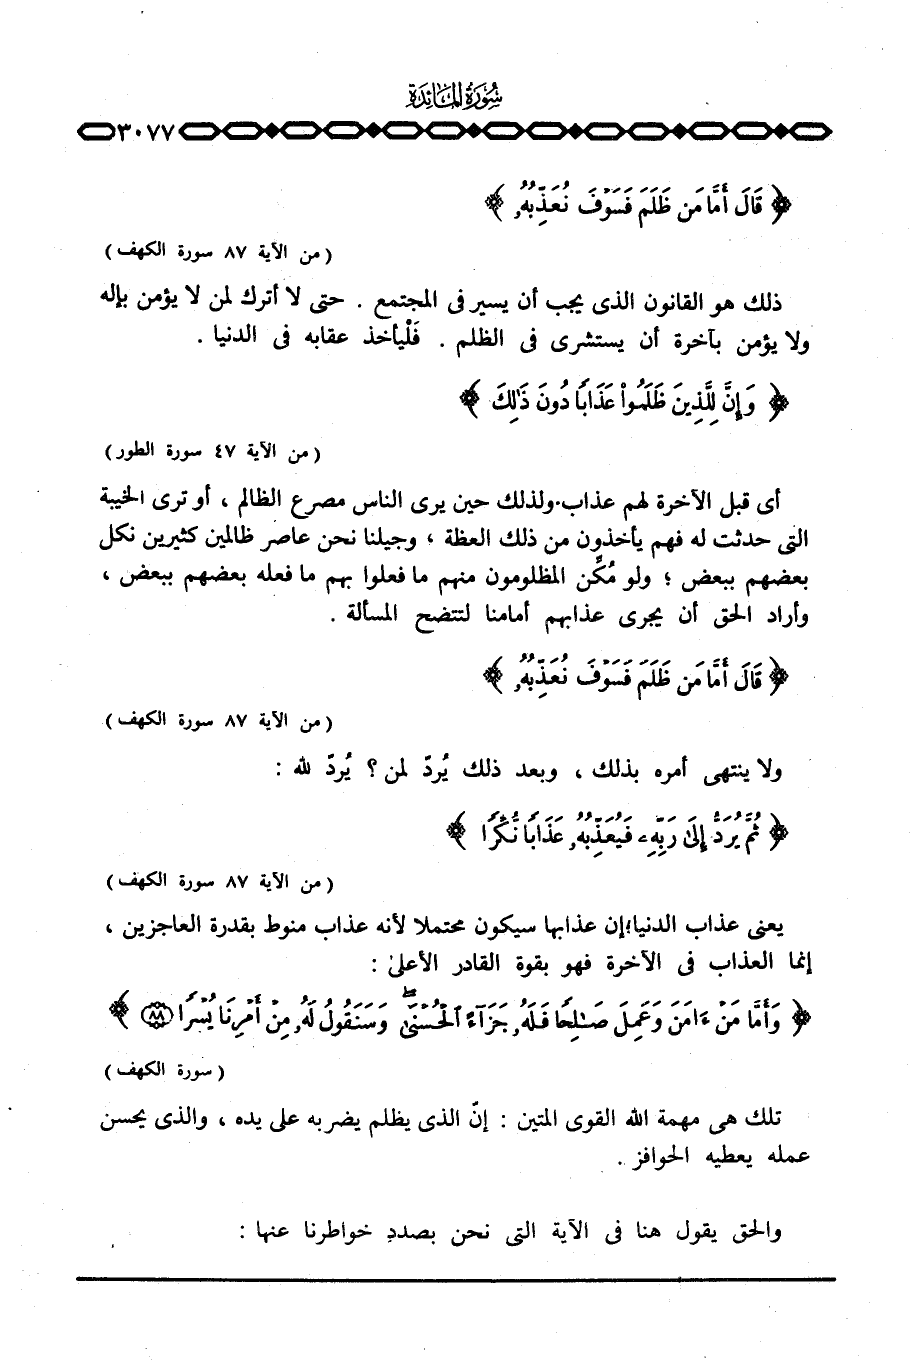 سورة المائدة
٣٠٧٧
﴿ قَالَ أَمَّا مَن ظَلَمَ فَسَوْفَ نُعَذِّبُهُۥ ﴾
( من الآية ٨٧ سورة الكهف )
ذلك هو القانون الذى يجب أن يسير فى المجتمع . حتى لا أترك لمن لا يؤمن بإله
ولا يؤمن بآخرة أن يستشرى فى الظلم . فَلْيأخذ عقابه فى الدنيا .
﴿ وَإِنَّ لِلَّذِينَ ظَلَمُوا۟ عَذَابًا دُونَ ذَٰلِكَ ﴾
( من الآية ٤٧ سورة الطور )
أى قبل الآخرة لهم عذاب . ولذلك حين يرى الناس مصرع الظالم ، أو ترى الخيبة
التى حدثت له فهم يأخذون من ذلك العظة ، وجيلنا نحن عاصر ظالمين كثيرين نكل
بعضهم ببعض ؛ ولو مُكِّن المظلومون منهم ما فعلوا بهم ما فعله بعضهم ببعض ،
وأراد الحق أن يجرى عذابهم أمامنا لتتضح المسألة .
﴿ قَالَ أَمَّا مَن ظَلَمَ فَسَوْفَ نُعَذِّبُهُۥ ﴾
( من الآية ٨٧ سورة الكهف )
ولا ينتهى أمره بذلك ، وبعد ذلك يُردّ لمن ؟ يُردّ لله :
﴿ ثُمَّ يُرَدُّ إِلَىٰ رَبِّهِۦ فَيُعَذِّبُهُۥ عَذَابًا نُّكْرًا ﴾
( من الآية ٨٧ سورة الكهف )
يعنى عذاب الدنيا ؛ إن عذابها سيكون محتملا لأنه عذاب منوط بقدرة العاجزين ،
إنما العذاب فى الآخرة فهو بقوة القادر الأعلىٰ :
﴿ وَأَمَّا مَنْ ءَامَنَ وَعَمِلَ صَـٰلِحًا فَلَهُۥ جَزَآءً ٱلْحُسْنَىٰ ۖ وَسَنَقُولُ لَهُۥ مِنْ أَمْرِنَا يُسْرًا ٨٨ ﴾
( سورة الكهف )
تلك هى مهمة الله القوى المتين : إنّ الذى يظلم يضربه على يده ، والذى يحسن
عمله يعطيه الحوافز .
والحق يقول هنا فى الآية التى نحن بصددِ خواطرنا عنها :